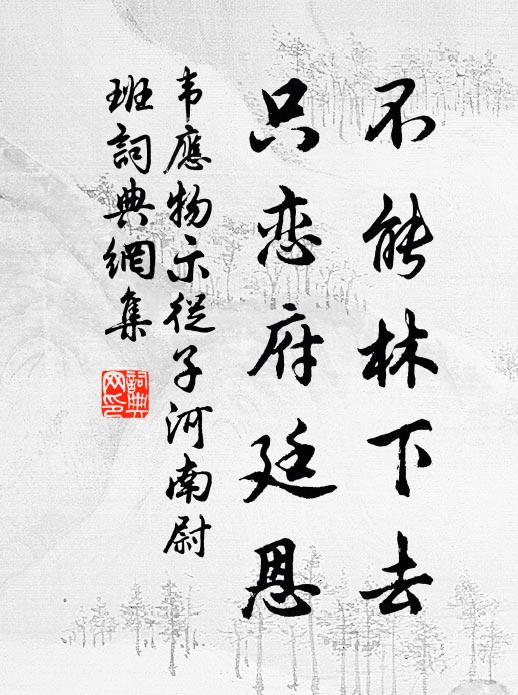 不能林下去
只恋府廷恩
韦應物示從子河南尉
班詞典網集
詞典
网印